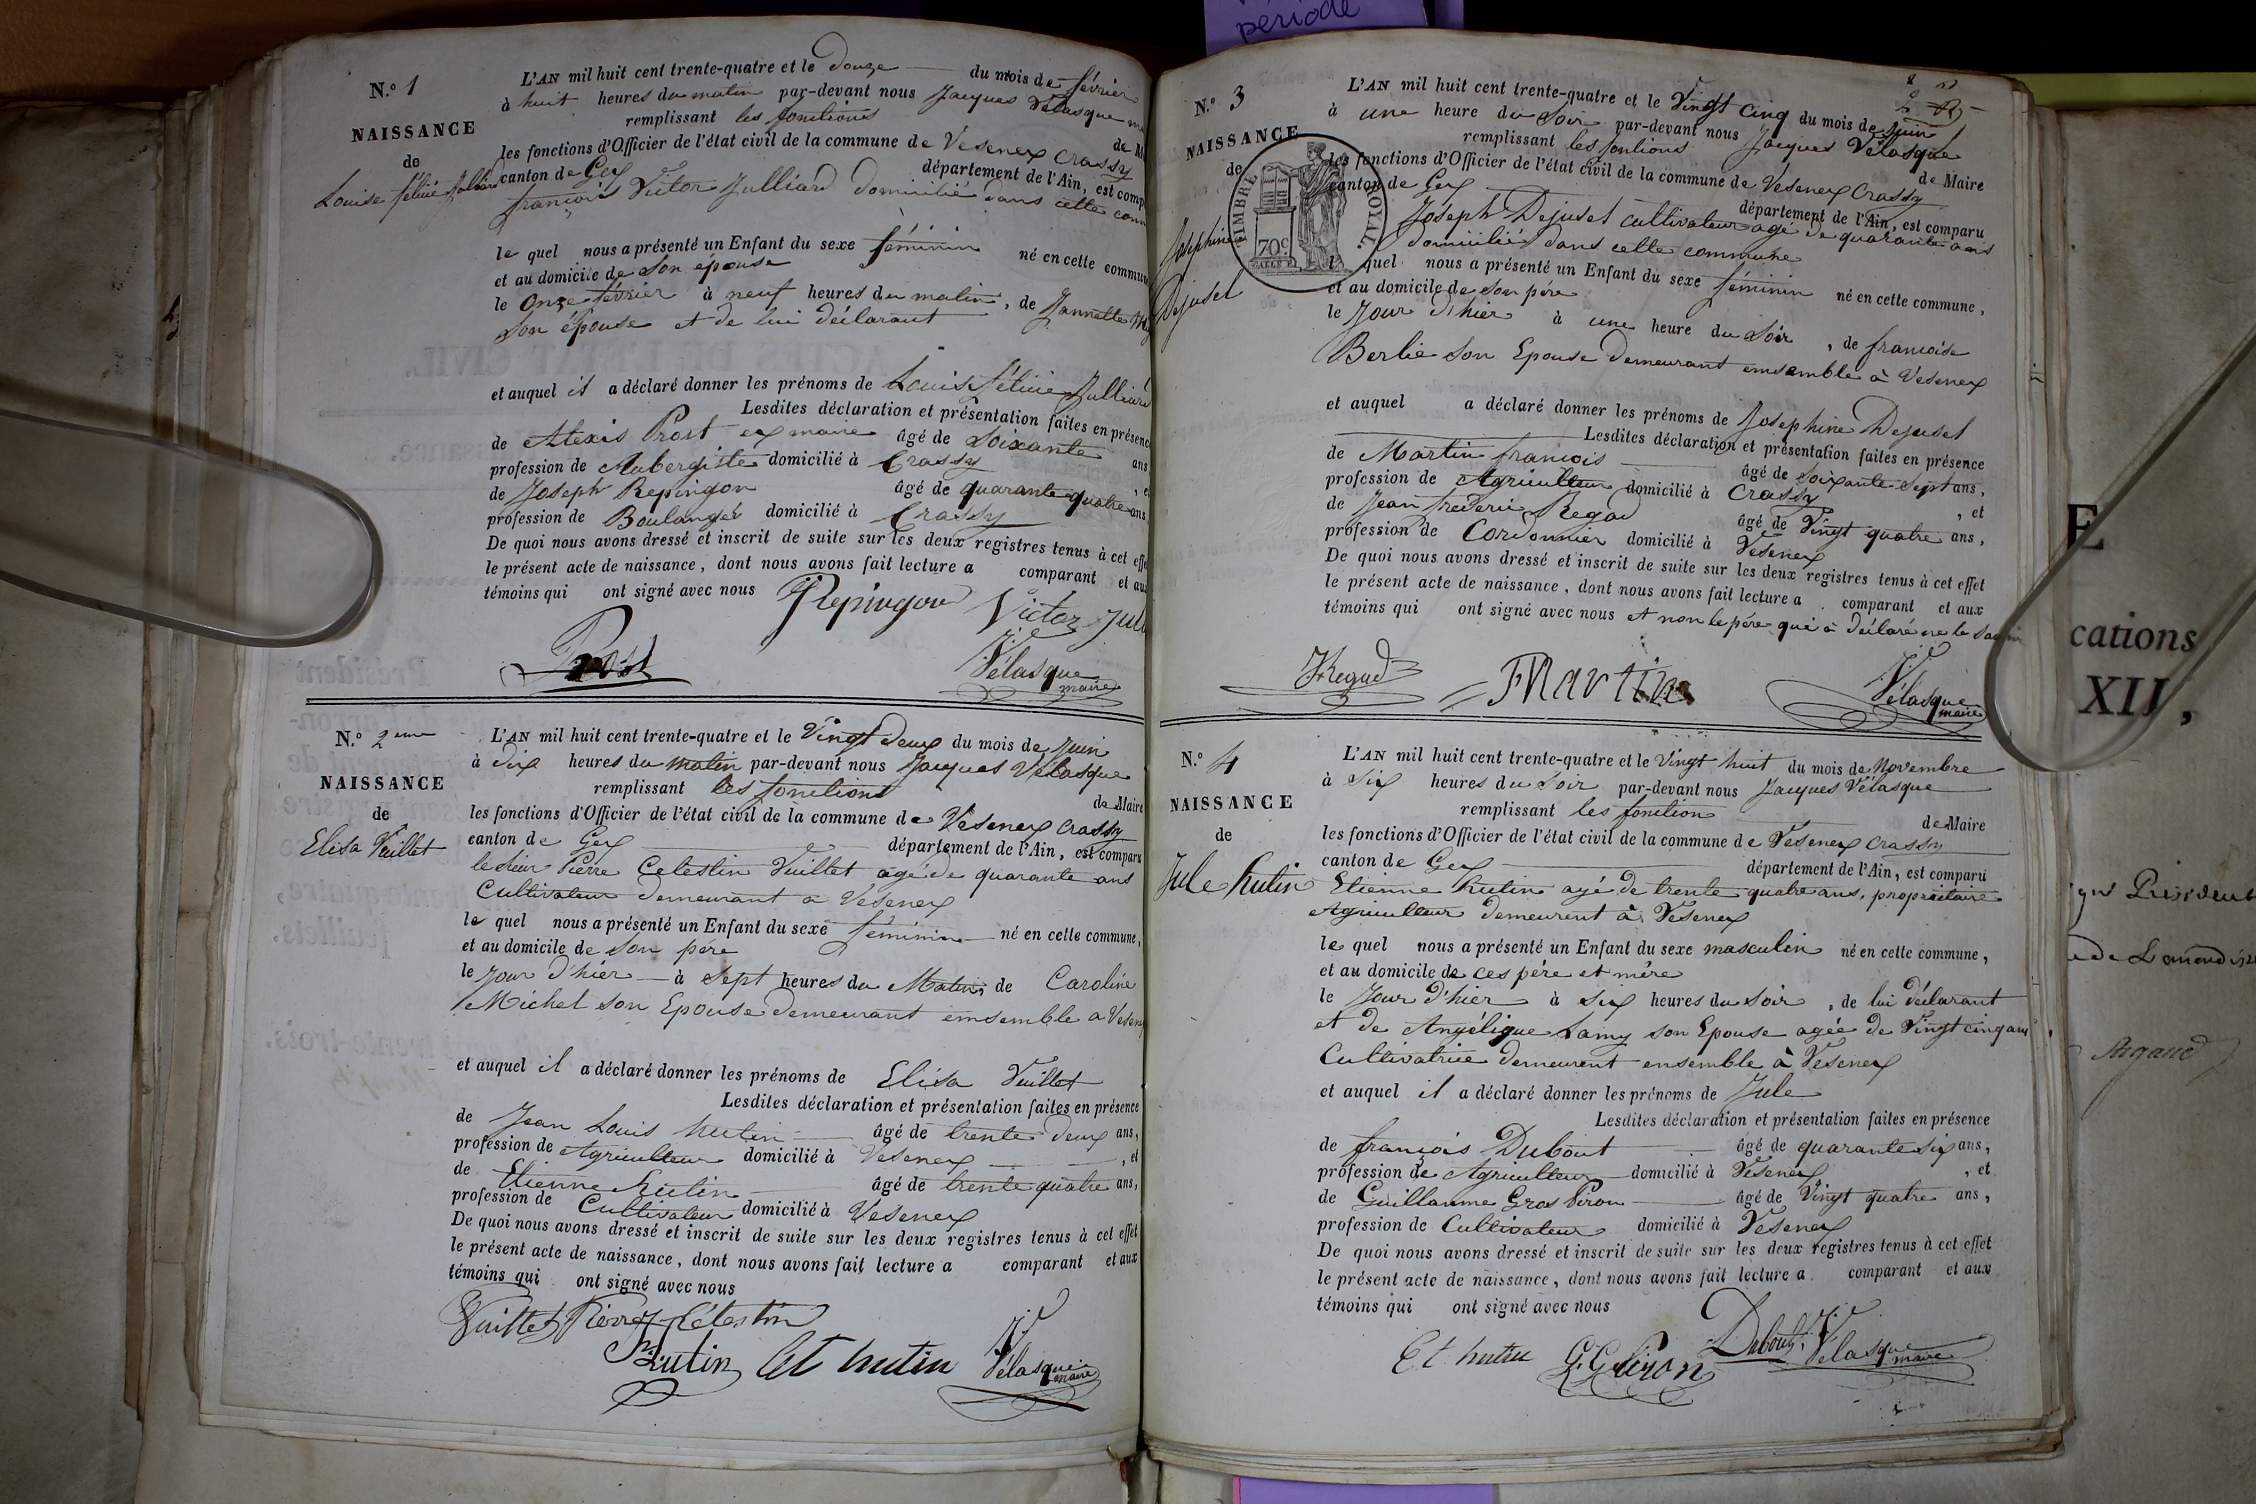 période
N.º 1
NAISSANCE
de
Louise félicie Julliard
L'AN mil huit cent trente-quatre et le douze du mois de février
à huit heures du matin par-devant nous Jacques Vélasque
remplissant les fonctions de
les fonctions d'Officier de l'état civil de la commune de Vesenex Crassy
canton de Gex département de l'Ain, est
françois Victor Julliard domicilié dans cette
le quel nous a présenté un Enfant du sexe féminin né en cette
et au domicile de son épouse
le onze février à neuf heures du matin, de Jannette
son épouse et de lui déclarant
et auquel il a déclaré donner les prénoms de Louis félicie Julliard
Lesdites déclaration et présentation faites en
de Alexis Prost ex maire âgé de soixante ans
profession de Aubergiste domicilié à Crassy
de Joseph Repingon âgé de quarante quatre ans
profession de Boulanger domicilié à Crassy
De quoi nous avons dressé et inscrit de suite sur les deux registres tenus à cet
le présent acte de naissance, dont nous avons fait lecture a comparant et
témoins qui ont signé avec nous
Repingon Victor
Prost Vélasque
maire
N.º 2eme
NAISSANCE
de
Elisa Vuillet
L'AN mil huit cent trente-quatre et le Vingt deux du mois de Juin
à dix heures du matin par-devant nous Jacques Vélasque
remplissant les fonctions de Maire
les fonctions d'Officier de l'état civil de la commune de Vesenex Crassy
canton de Gex département de l'Ain, est comparu
le sieur Pierre Celestin Vuillet agé de quarante ans
Cultivateur demeurant a Vésenex
le quel nous a présenté un Enfant du sexe féminin né en cette commune,
et au domicile de son pére
le jour d'hier à sept heures du Matin, de Caroline
Michel son Epouse demeurant emsemble a
et auquel il a déclaré donner les prénoms de Elisa Vuillet
Lesdites déclaration et présentation faites en présence
de Jean Louis hutin âgé de trente deux ans,
profession de Agriculteur domicilié à Vesenex, et
de Etienne hutin âgé de trente quatre ans,
profession de Cultivateur domicilié à Vesenex
De quoi nous avons dressé et inscrit de suite sur les deux registres tenus à cet effet
le présent acte de naissance, dont nous avons fait lecture a comparant et aux
témoins qui ont signé avec nous
Vuillet Pierre Célestin
hutin Et hutin Vélasque
maire
N.º 3
NAISSANCE
de
Josephine
Dejusel
TIMBRE ROYAL.
70c
L'AN mil huit cent trente-quatre et le Vingt Cinq du mois de Juin
à une heure du Soir par-devant nous Jacques Vélasque
remplissant les fontions de Maire
les fonctions d'Officier de l'état civil de la commune de Vesenex Crassy
canton de Gex département de l'Ain, est comparu
Joseph Dejusel Cultivateur agé de quarante ans
domicilié dans cette commune
le quel nous a présenté un Enfant du sexe féminin né en cette commune,
et au domicile de son pére
le Jour d'hier à une heure du Soir, de francoise
Berlie son Epouse demeurant emsemble à Vesenex
et auquel a déclaré donner les prénoms de Josephine Dejusel
Lesdites déclaration et présentation faites en présence
de Martin francois âgé de soixante sept ans,
profession de Agriculteur domicilié à Crassy, et
de Jean frederic Regad âgé de Vingt quatre ans,
profession de Cordonnier domicilié à Vesenex
De quoi nous avons dressé et inscrit de suite sur les deux registres tenus à cet effet
le présent acte de naissance, dont nous avons fait lecture a comparant et aux
témoins qui ont signé avec nous et non le pére qui à déclaré ne le savoir
Regad Martin Vélasque
maire
N.º 4
NAISSANCE
de
Jule hutin
L'AN mil huit cent trente-quatre et le Vingt huit du mois de Novembre
à Six heures du Soir par-devant nous Jacques Vélasque
remplissant les fonction de Maire
les fonctions d'Officier de l'état civil de la commune de Vesenex Crassy
canton de Gex département de l'Ain, est comparu
Etienne hutin agé de trente quatre ans, propriétaire
Agriculteur demeurent à Vesenex
le quel nous a présenté un Enfant du sexe masculin né en cette commune,
et au domicile de ces pére et mére
le Jour d'hier à six heures du soir, de lui déclarant
et de Angélique Lamy son Epouse agée de Vingt cinq ans
Cultivatrice demeurent ensemble à Vesenex
et auquel il a déclaré donner les prénoms de Jule
Lesdites déclaration et présentation faites en présence
de françois Dubout âgé de quarante six ans,
profession de Agriculteur domicilié à Vesenex, et
de Guillaume Gros Piron âgé de Vingt quatre ans,
profession de Cultivateur domicilié à Vesenex
De quoi nous avons dressé et inscrit de suite sur les deux registres tenus à cet effet
le présent acte de naissance, dont nous avons fait lecture a comparant et aux
témoins qui ont signé avec nous
Et hutin G. G. Piron Dubout Vélasque
maire
E
cations
XII,
Président
Argaud